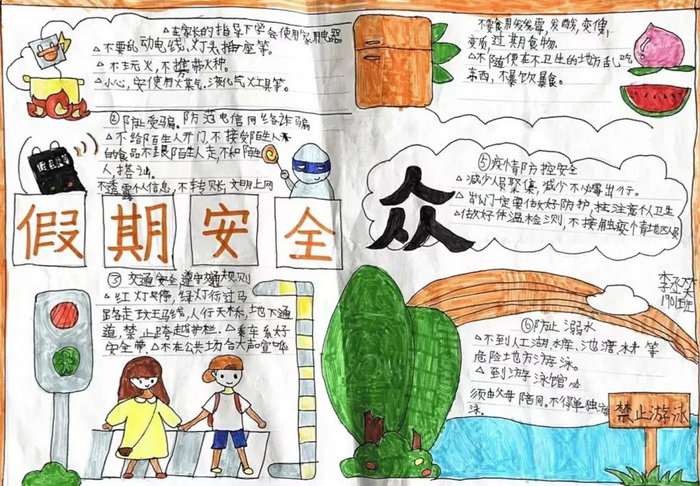 △在家长的指导下学会使用家用电器
△不要乱动电线、灯头、插座等。
△不玩火,不携带火种。
△小心,安使用火煤气、液化气灶具等。
②防止受骗。防范电信网络诈骗
△不给陌生人开门,不接受陌生人
的食品不跟陌生人走,不和陌生
人搭讪。
不透露个人信息,不转账,文明上网
假期安全
③交通安全遵守交通规则
△红灯停,绿灯行过马
路走斑马线,人行天桥,地下通
道,禁止跨越护栏。△乘车系好
安全带,△不在公共场合大声喧哗
不要食用发霉,发酸,变馊,
变质,过期食物。
△不随便在不卫生的地方乱吃
东西,不暴饮暴食。
众
⑤疫情防控安全
△减少人员聚集,减少不必要出行。
△出门一定要做好防护,
△做好体温检测,不接触
1901班
⑥防止溺水
△不到江湖、水库、池塘、等
危险地方游泳。
△到游泳馆必
须由父母陪同。不得单独游
泳。
禁止游泳